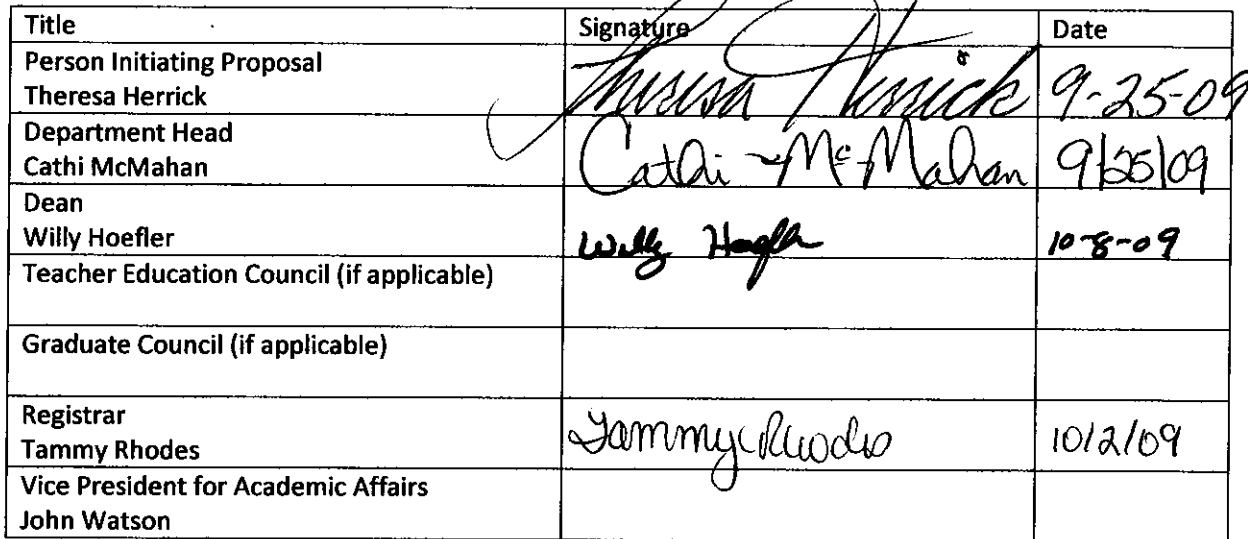 Title Signature Date
Person Initiating Proposal
Theresa Herrick Theresa Herrick 9-25-09
Department Head
Cathi McMahan Cathi McMahan 9/25/09
Dean
Willy Hoefler Willy Hoefler 10-8-09
Teacher Education Council (if applicable)
Graduate Council (if applicable)
Registrar
Tammy Rhodes Tammy Rhodes 10/2/09
Vice President for Academic Affairs
John Watson